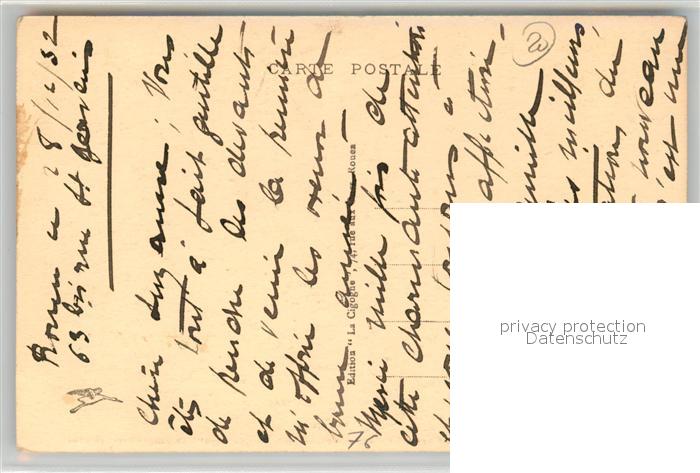 CARTE POSTALE
Rouen 28/12/32
63 bis rue St Gervais
Chère Suzanne, Vous
êtes tout à fait gentille
de prendre les devants
et de venir la première
m'offrir les vœux de
bonne année —
Merci mille fois de
cette charmante attention
et vous
à
affection.
famille
meilleurs
du
nouveau
est une
Edition "La Cigogne", 74, rue aux Rouen
23
privacy protection
Datenschutz